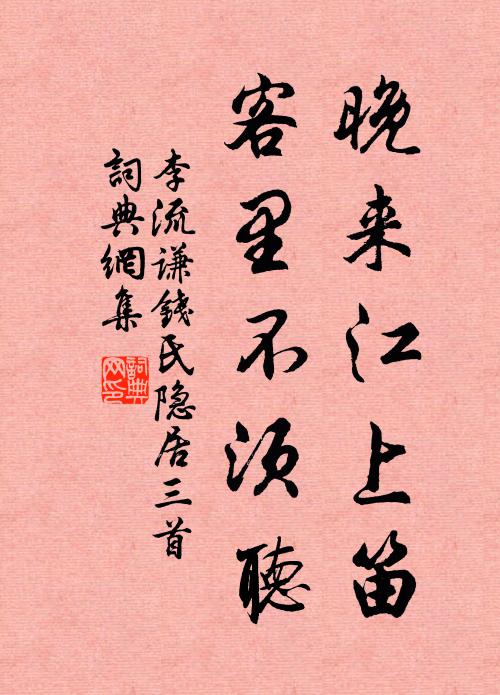 晚来江上笛
客里不须聽
李流谦錢氏隐居三首
詞典網集
詞典
网印